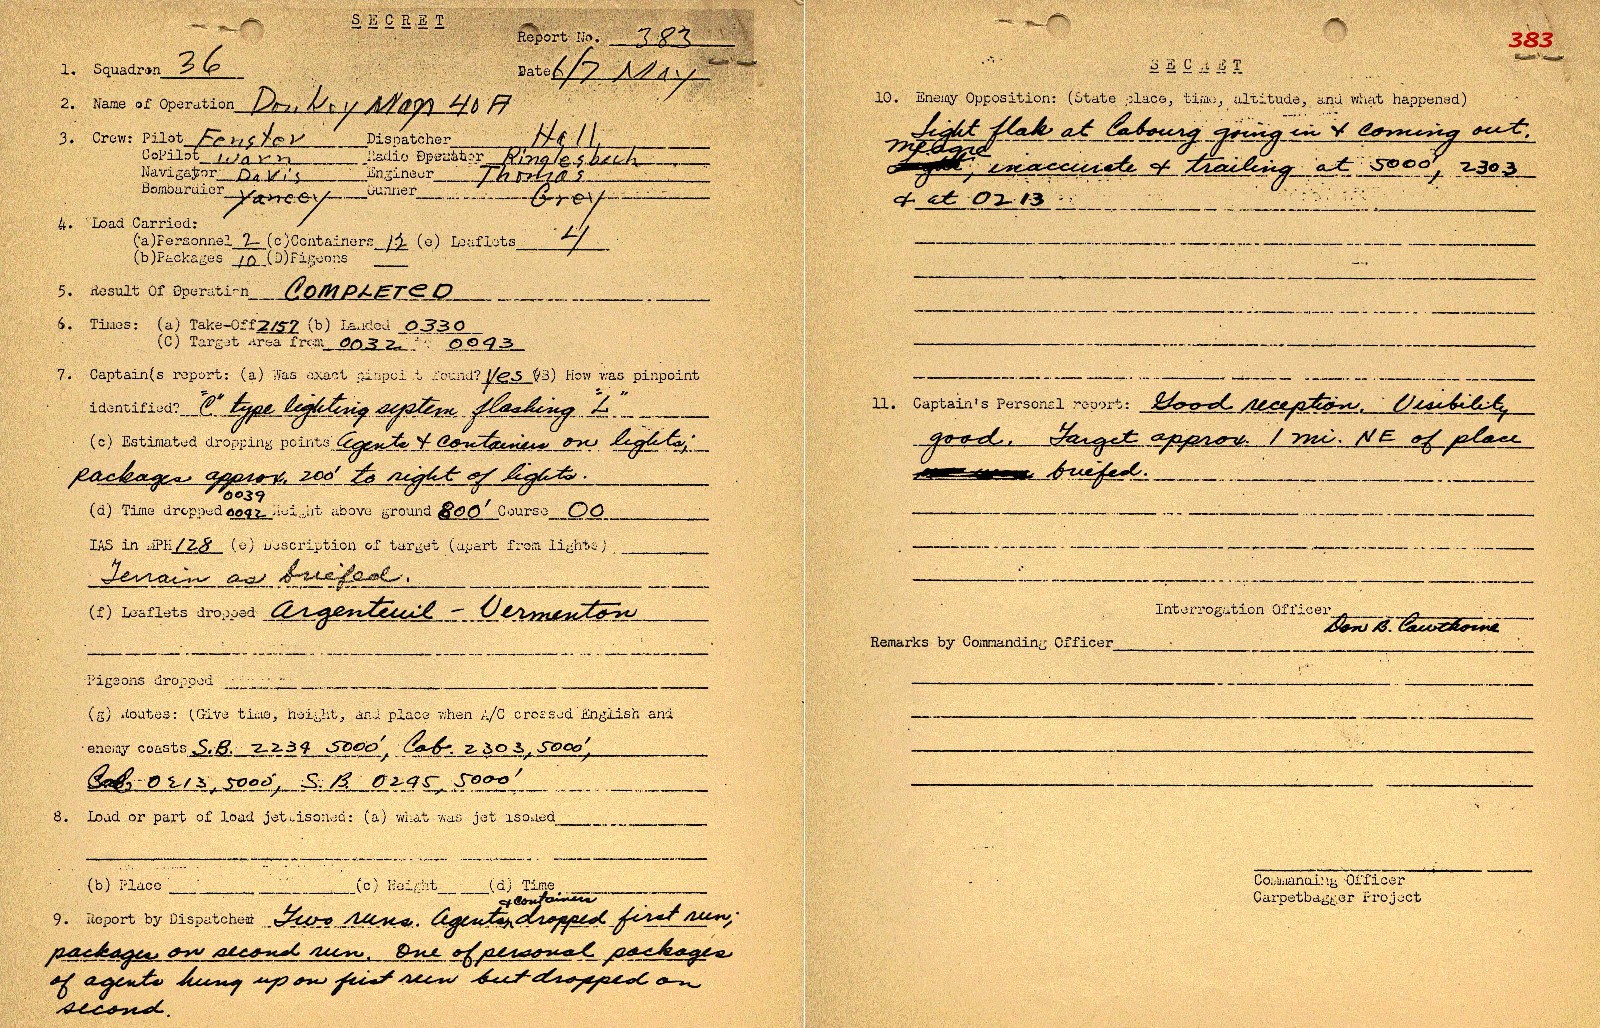 SECRET
Report No. 383
1. Squadron 36
Date 6/7 May
2. Name of Operation Donkey Man 40A
3. Crew: Pilot Fenster Dispatcher Hall
CoPilot Warn Radio Operator Ringlesbach
Navigator Davis Engineer Thomas
Bombardier Yancey Gunner Grey
4. Load Carried:
(a)Personnel 2 (c)Containers 12 (e) Leaflets 4
(b)Packages 10 (D)Pigeons
5. Result Of Operation COMPLETED
6. Times: (a) Take-Off 2157 (b) Landed 0330
(C) Target Area from 0032 to 0043
7. Captain(s report: (a) Was exact pinpoint found? Yes (B) How was pinpoint
identified? "C" type lighting system flashing "L"
(c) Estimated dropping points Agents & containers on lights;
packages approx. 200' to right of lights.
0039
(d) Time dropped 0042 Height above ground 800' Course 00
IAS in MPH 128 (e) Description of target (apart from lights)
Terrain as briefed.
(f) Leaflets dropped Argenteuil - Vermenton
Pigeons dropped
(g) Routes: (Give time, height, and place when A/C crossed English and
enemy coasts S.B. 2234 5000', Cab. 2303, 5000',
Cab. 0213, 5000', S.B. 0245, 5000'
8. Load or part of load jettisoned: (a) what was jettisoned
(b) Place (c) Height (d) Time
& containers
9. Report by Dispatcher Two runs. Agents dropped first run;
packages on second run. One of personal packages
of agents hung up on first run but dropped on
second.
383
SECRET
10. Enemy Opposition: (State place, time, altitude, and what happened)
Light flak at Cabourg going in & coming out.
meagre
, inaccurate & trailing at 5000', 2303
& at 0213
11. Captain's Personal report: Good reception. Visibility
good. Target approx. 1 mi. NE of place
briefed.
Interrogation Officer
Don B. Cawthorne
Remarks by Commanding Officer
Commanding Officer
Carpetbagger Project